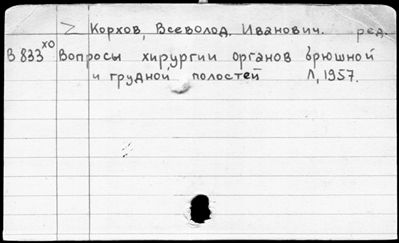 Корхов, Всеволод. Иванович. ред.
В 833 хо Вопросы хирургии органов брюшной
и грудной полостей Л, 1957.